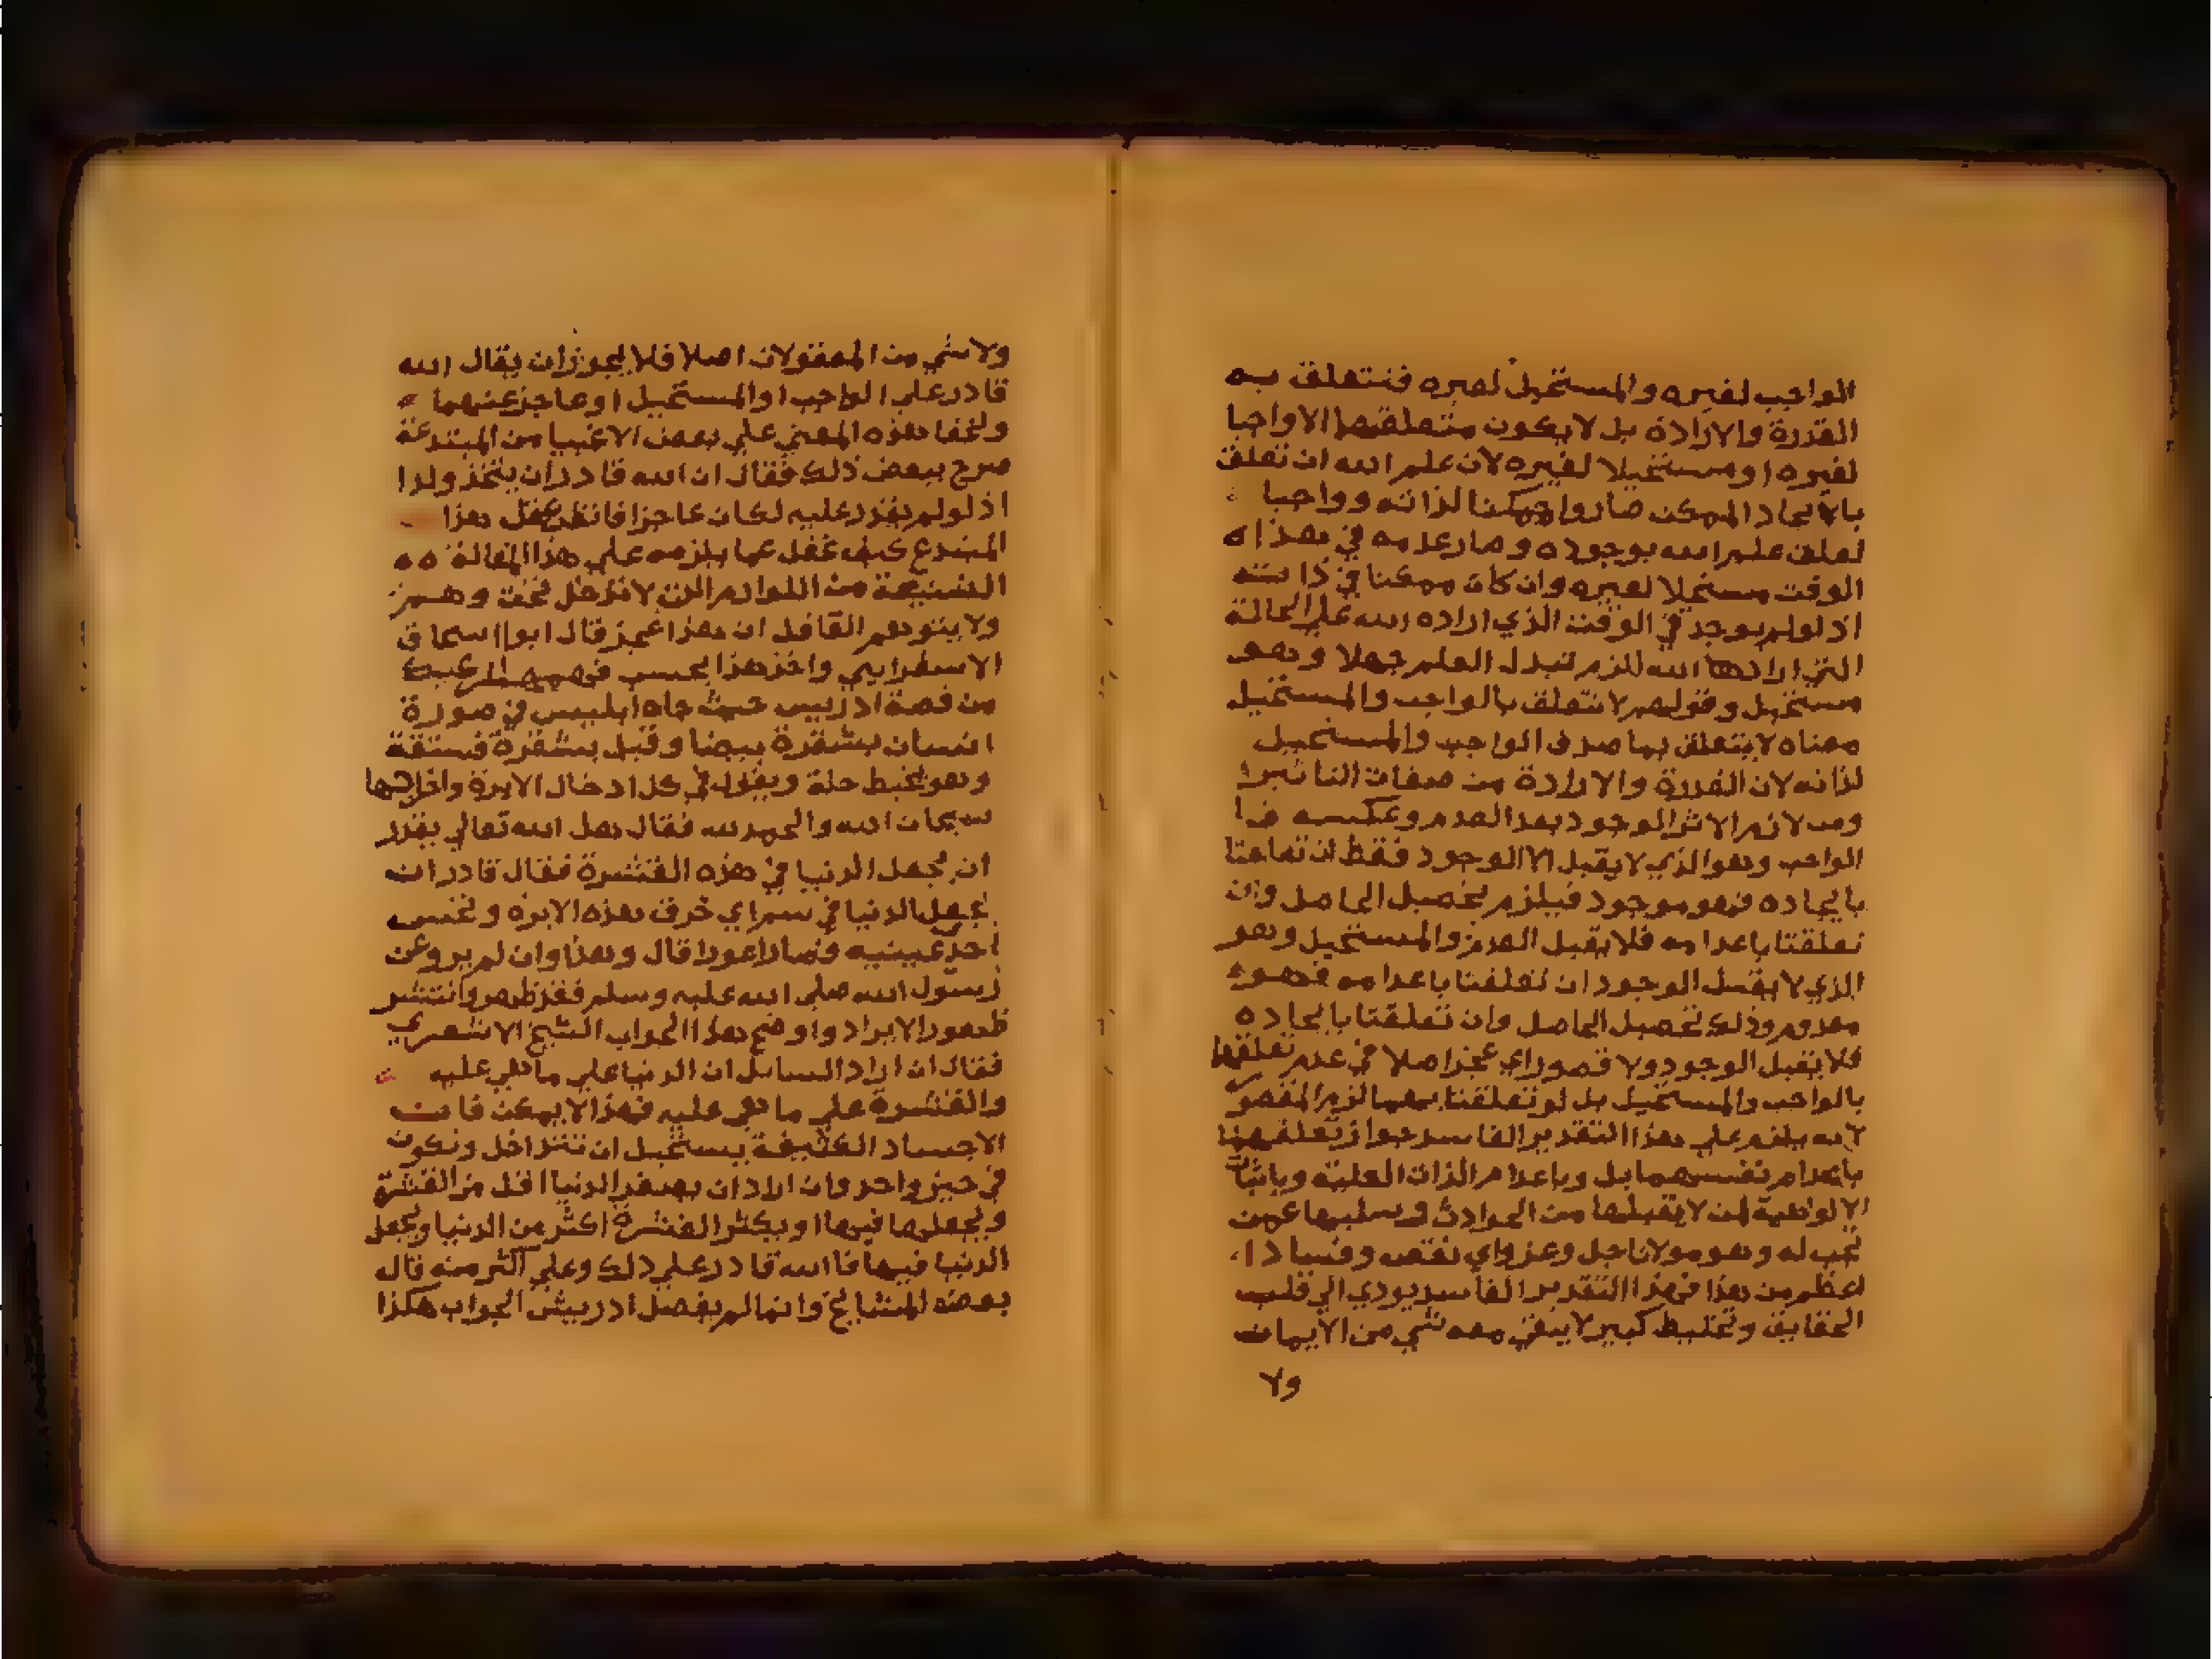 الواجب لغيره والمستحيل لغيره فنتعلق به
القدرة والارادة بل لا يكون متعلقهما الا واجبا
لغيره او مستحيلا لغيره لان علم الله ان تعلق
بالايجاد الممكن صار واجبا ممكنا لذاته وواجبا
لعلق علم الله بوجوده وصار عدمه في هذا ه
الوقت مستحيلا لغيره وان كان ممكنا في ذاته
اذ لو لم يوجد في الوقت الذي اراده الله علي الحالة
التي ارادها الله للزم تبدل العلم جهلا وهو
مستحيل وقولهم لا تتعلق بالواجب والمستحيل
معناه لا يتعلق بها صرف الواجب والمستحيل
لذاته لان القدرة والارادة من صفات التاثير
ومن لازم الاثر الوجود بعد العدم وعكسه فا
الواجب وهو الذي لا يقبل الا الوجود فقط ان تعلقتا
بايجاده فهو موجود فيلزم تحصيل الحاصل وان
تعلقتا باعدامه فلا يقبل العدم والمستحيل وهو
الذي لا يقبل الوجود ان تعلقتا باعدامه فهو
معدوم وذلك تحصيل الحاصل وان تعلقتا بايجاده
فلا يقبل الوجود ولا قصور اي عجز اصلا في عدم تعلقهما
بالواجب والمستحيل بل لو تعلقتا بهما لزم القصور
لانه يلزم علي هذا التقدير الفاسد جواز تعلقهما
باعدام نفسهما بل وباعدام الذات العلية وباثبات
الالوهية لمن لا يقبلها من الحوادث وسلبها عمن
تجب له وهو مولانا جل وعز واي نقص وفساد
اعظم من هذا فهذا التقدير الفاسد يودي الي قلب
الحقايق وتخليط كبير لا يبقي معه شي من الايمان
ولا
ولا شي من المعقولات اصلا فلا يجوز ان يقال الله
قادر علي الواجب او المستحيل او عاجز عنهما
ولخفا هذه المعني علي بعض الاغبيا من المبتدعة
صرح ببعض ذلك فقال ان الله قادر ان يتخذ ولدا
اذ لو لم يقدر عليه لكان عاجزا فانظر عقل هذا
المبتدع كيف غفل عما يلزمه علي هذا المقالة ه ه
الشنيعة من اللوازم التي لا تدخل تحت وهم
ولا يتوهم القافل ان هذا عجز قال ابو اسحاق
الاسفرايني واخذ هذا بحسب فهمه
من قصة ادريس حيث جاه ابليس في صورة
انسان بقشرة بيضا وقيل بقشرة فستقة
وهو يخيط حلة ويقول في كل ادخال الابرة واخراجها
سبحان الله والحمد لله فقال هل الله تعالي يقدر
ان يجعل الدنيا في هذه القشرة فقال قادر ان
يجعل الدنيا في سم اي خرق هذه الابرة ونخس
احد عينيه وصار اعورا قال وهذا وان لم يروعن
رسول الله صلي الله عليه وسلم فقد ظهر وانتشر
ظهور الايراد واوضح هذا الجواب الشيخ الاشعري
فقال ان اراد السايل ان الدنيا علي ما هي عليه
والقشرة علي ما هي عليه فهذا لا يمكن فان
الاجساد الكثيفة يستحيل ان تتداخل وتكون
في حيز واحد وان اراد ان يصغر الدنيا اقل من القشرة
ويجعلها فيها او يكثر القشرة اكثر من الدنيا ويجعل
الدنيا فيها فالله قادر علي ذلك وعلي اكثر منه قال
بعض المشايخ وانما لم يفصل ادريس الجواب هكذا